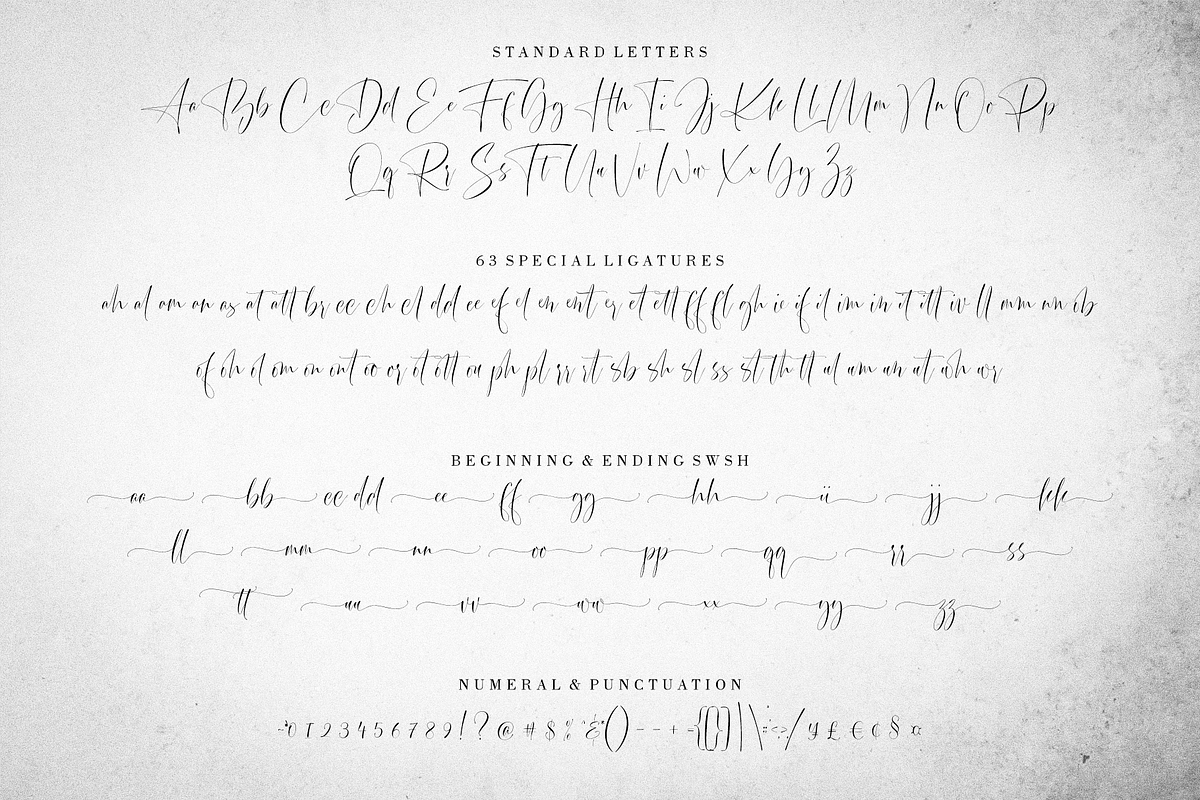 STANDARD LETTERS
Aa Bb Cc Dd Ee Ff Gg Hh Ii Jj Kk Ll Mm Nn Oo Pp
Qq Rr Ss Tt Uu Vv Ww Xx Yy Zz
63 SPECIAL LIGATURES
ah al am an as at att br cc ch cl dd ee ef el en ent er et ett ff fl gh ic if il im in it itt iv ll mm nn ob
of oh ol om on ont oo or ot ott ou ph pl rr rt sb sh sl ss st th tt ul um un ut wh wr
BEGINNING & ENDING SWSH
aa bb cc dd ee ff gg hh ii jj kk
ll mm nn oo pp qq rr ss
tt uu vv ww xx yy zz
NUMERAL & PUNCTUATION
0 1 2 3 4 5 6 7 8 9 ! ? @ # $ % & ( ) - - + { [ ] } | \ : ; < > / ¥ £ € ¢ § ¤